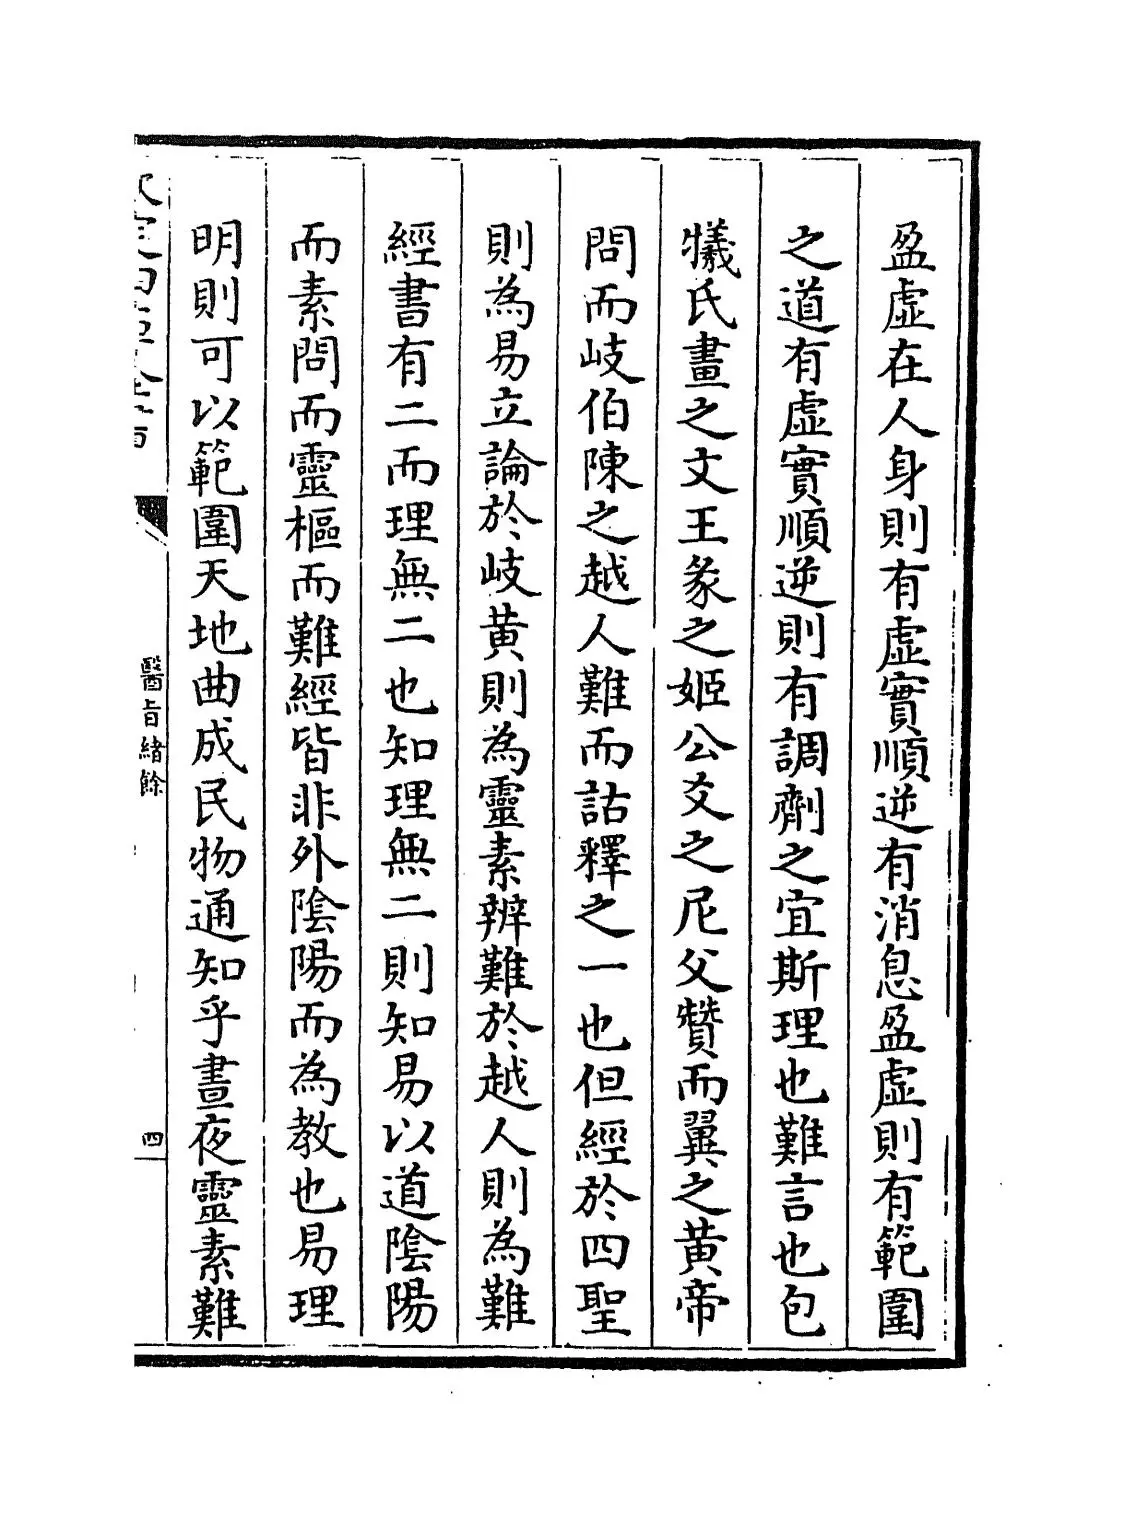 盈虛在人身則有虛實順逆有消息盈虛則有範圍
之道有虛實順逆則有調劑之宜斯理也難言也包
犧氏畫之文王彖之姬公爻之尼父贊而翼之黃帝
問而岐伯陳之越人難而詁釋之一也但經於四聖
則為易立論於岐黃則為靈素辨難於越人則為難
經書有二而理無二也知理無二則知易以道陰陽
而素問而靈樞而難經皆非外陰陽而為教也易理
明則可以範圍天地曲成民物通知乎晝夜靈素難
欽定四庫全書
醫旨緒餘
四